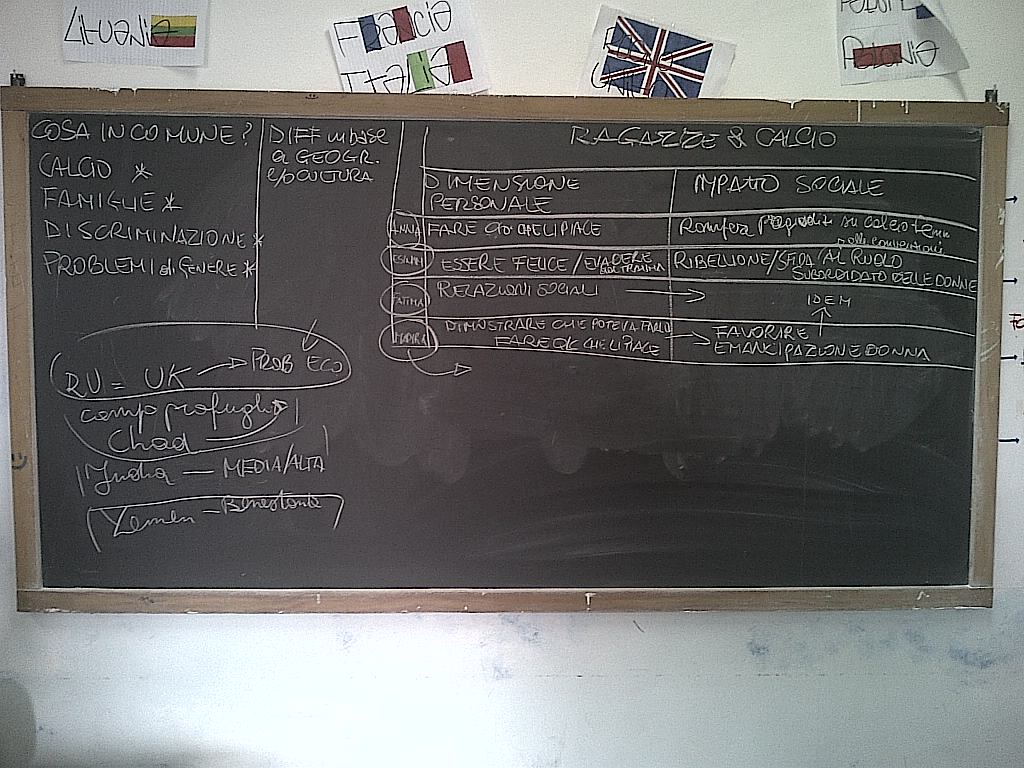 Lituania
Francia
Italia
Polonia
COSA IN COMUNE?
CALCIO *
FAMIGLIE *
DISCRIMINAZIONE *
PROBLEMI di GENERE *
DIFF in base
a GEOGR.
e/o CULTURA
RU = UK → PROB ECO
campo profughi
Chad
India — MEDIA/ALTA
Yemen - Benestante
RAGAZZE & CALCIO
DIMENSIONE
PERSONALE
IMPATTO SOCIALE
ANNA
FARE CIÒ CHE LI PIACE
Rompere su calcio femm
ESSERE FELICE / EVADERE
RIBELLIONE/SFIDA AL RUOLO
SUBORDINATO DELLE DONNE
FATIMA
RELAZIONI SOCIALI →
IDEM
DIMOSTRARE CHE POTEVA FARLO
FARE CHE LI PIACE
→ FAVORIRE
EMANCIPAZIONE DONNA